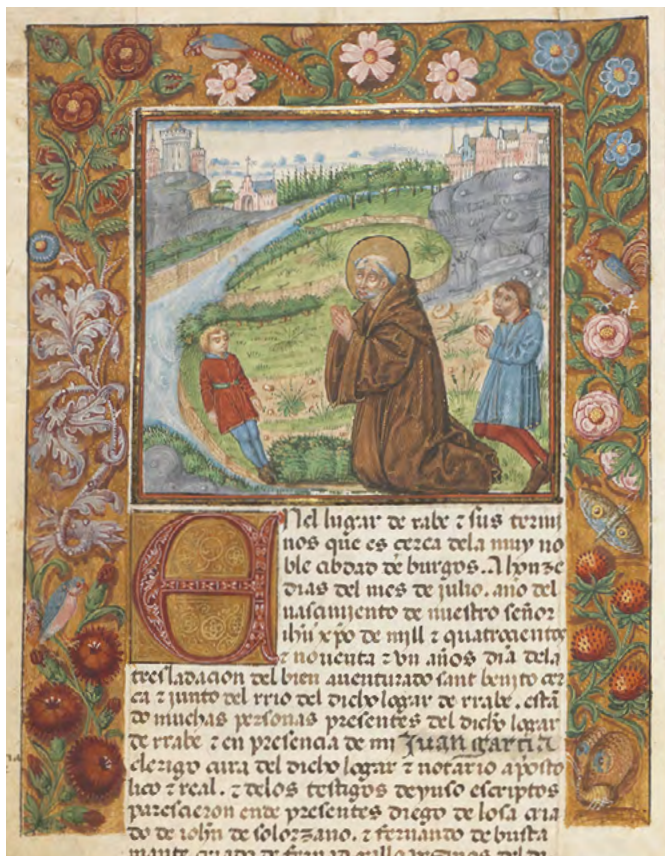 En el lugar de rabe ⁊ sus termi
nos que es cerca dela muy no
ble cibdad de burgos. A honze
dias del mes de julio. año del
nasamiento de nuestro señor
ihu xpo de mill ⁊ quatrocientos
⁊ noventa ⁊ vn años dia dela
tresladacion del bien aventurado sant benito cer
ca ⁊ junto del rrio del dicho logar de rrabe. estã
do muchas personas presentes del dicho logar
de rrabe ⁊ en presencia de mi Juan garcia
clerigo cura del dicho logar ⁊ notario aposto
lico ⁊ real. ⁊ delos testigos deyuso escriptos
parescieron ende presentes diego de losa cria
do de iohn de solorzano. ⁊ fernando de busta
mante criado de